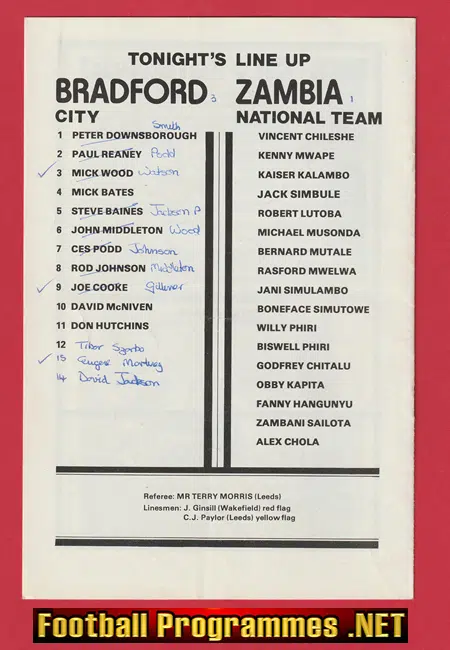 TONIGHT'S LINE UP
BRADFORD 3
CITY
Smith
1 PETER DOWNSBOROUGH
2 PAUL REANEY Podd
3 MICK WOOD Watson
4 MICK BATES
5 STEVE BAINES Jackson P
6 JOHN MIDDLETON Wood
7 CES PODD Johnson
8 ROD JOHNSON Middleton
9 JOE COOKE Gilliver
10 DAVID McNIVEN
11 DON HUTCHINS
12 Tibor Szabo
13
14 David Jackson
ZAMBIA 1
NATIONAL TEAM
VINCENT CHILESHE
KENNY MWAPE
KAISER KALAMBO
JACK SIMBULE
ROBERT LUTOBA
MICHAEL MUSONDA
BERNARD MUTALE
RASFORD MWELWA
JANI SIMULAMBO
BONEFACE SIMUTOWE
WILLY PHIRI
BISWELL PHIRI
GODFREY CHITALU
OBBY KAPITA
FANNY HANGUNYU
ZAMBANI SAILOTA
ALEX CHOLA
Referee: MR TERRY MORRIS (Leeds)
Linesmen: J. Ginsill (Wakefield) red flag
C.J. Paylor (Leeds) yellow flag
Football Programmes .NET